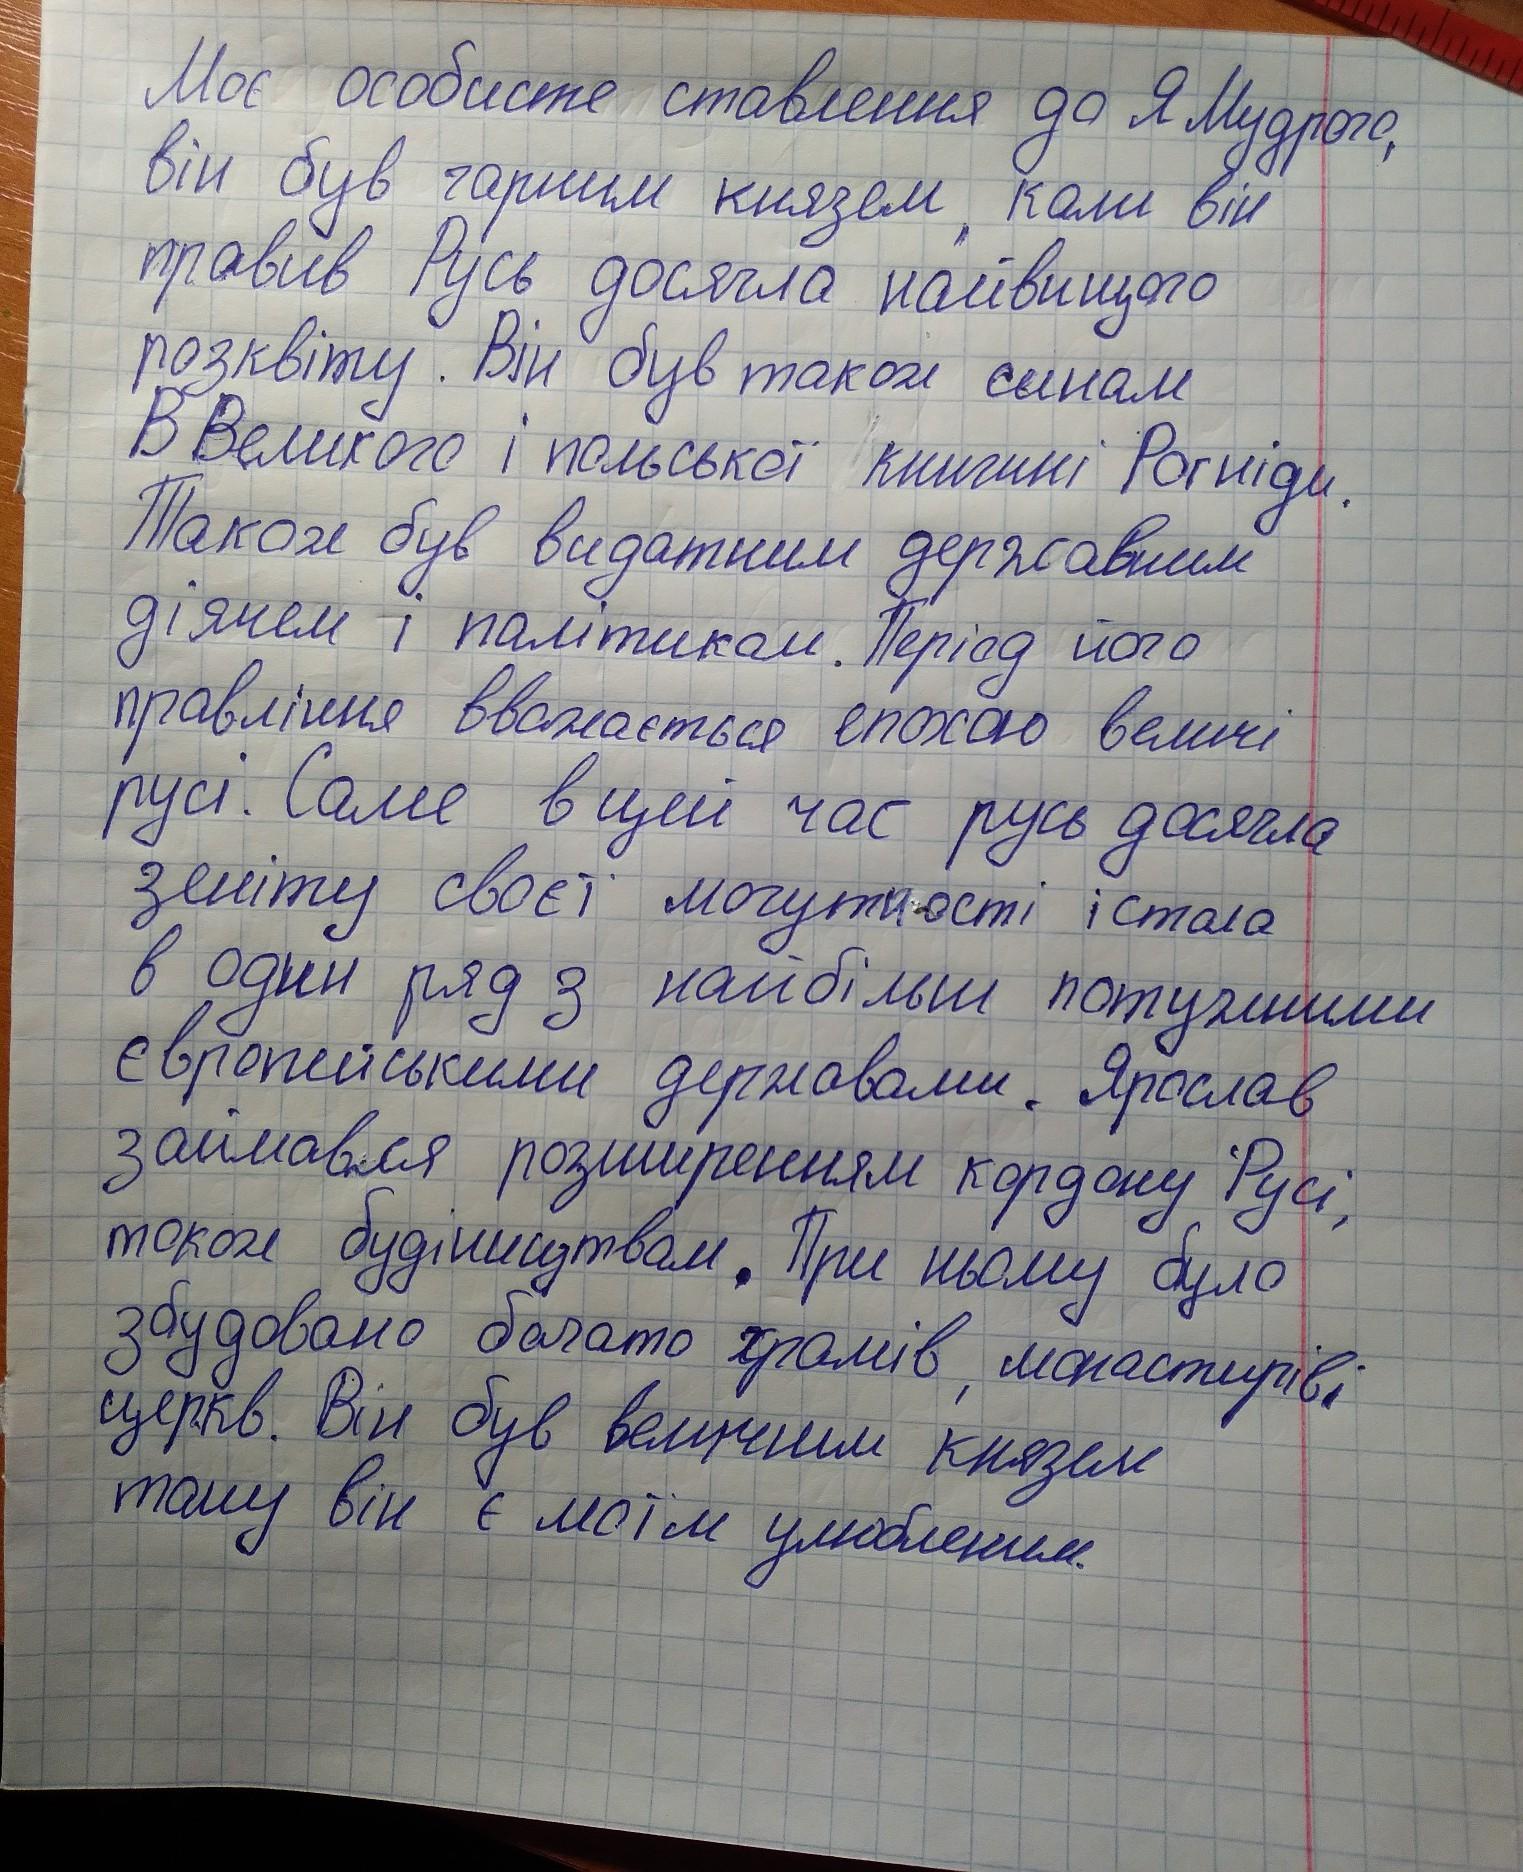 Моє особисте ставлення до Я Мудрого,
він був гарним князем, коли він
правив Русь досягла найвищого
розквіту. Він був також синам
В Великого і польської книгині Рогніди.
Також був видатним державним
діячем і політикам. Період його
правління вважається епохою величі
русі. Саме в цей час русь досягла
зеніту своєї могутності і стала
в один ряд з найбільш потужними
європейськими державами. Ярослав
займався розширенням кордону Русі,
також будівництвам. При ньому було
збудовано багато храмів, монастирів і
церкв. Він був величним князем
тому він є моїм улюбленим.